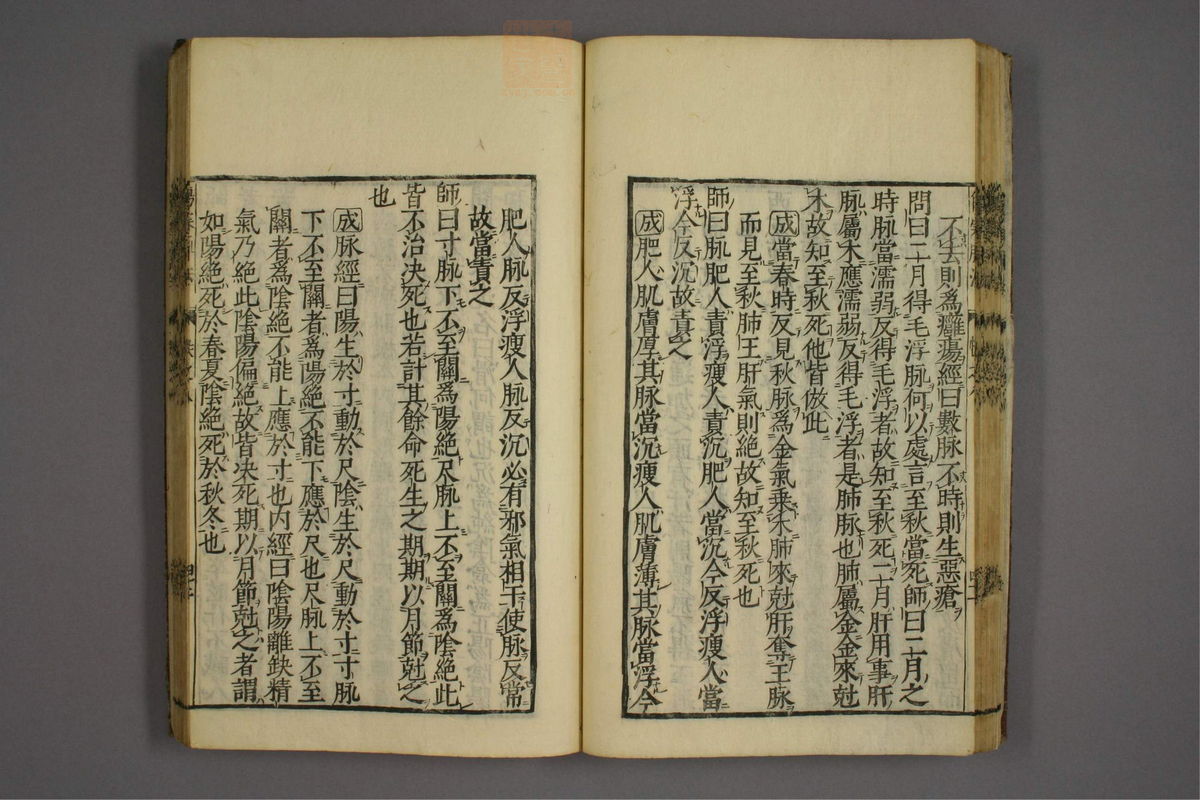 不去則爲癰瘍經曰數脉不時則生惡瘡
問曰二月得毛浮脉何以處言至秋當死師曰二月之
時脉當濡弱反得毛浮者故知至秋死二月肝用事肝
脉屬木應濡弱反得毛浮者是肺脉也肺屬金金來尅
木故知至秋死他皆倣此
成當春時反見秋脉爲金氣乗木肺來尅肝奪王脉
而見至秋肺王肝氣則絶故知至秋死也
師曰脉肥人責浮瘦人責沉肥人當沉今反浮瘦人當
浮今反沉故責之
成肥人肌膚厚其脉當沉瘦人肌膚薄其脉當浮今
肥人脉反浮瘦人脉反沉必有邪氣相干使脉反常
故當責之
師曰寸脉下不至關爲陽絶尺脉上不至關爲陰絶此
皆不治決死也若計其餘命死生之期期以月節尅之
也
成脉經曰陽生於寸動於尺陰生於尺動於寸寸脉
下不至關者爲陽絶不能下應於尺也尺脉上不至
關者爲陰絶不能上應於寸也内經曰陰陽離缺精
氣乃絶此陰陽偏絶故皆决死期以月節尅之者謂
如陽絶死於春夏陰絶死於秋冬也